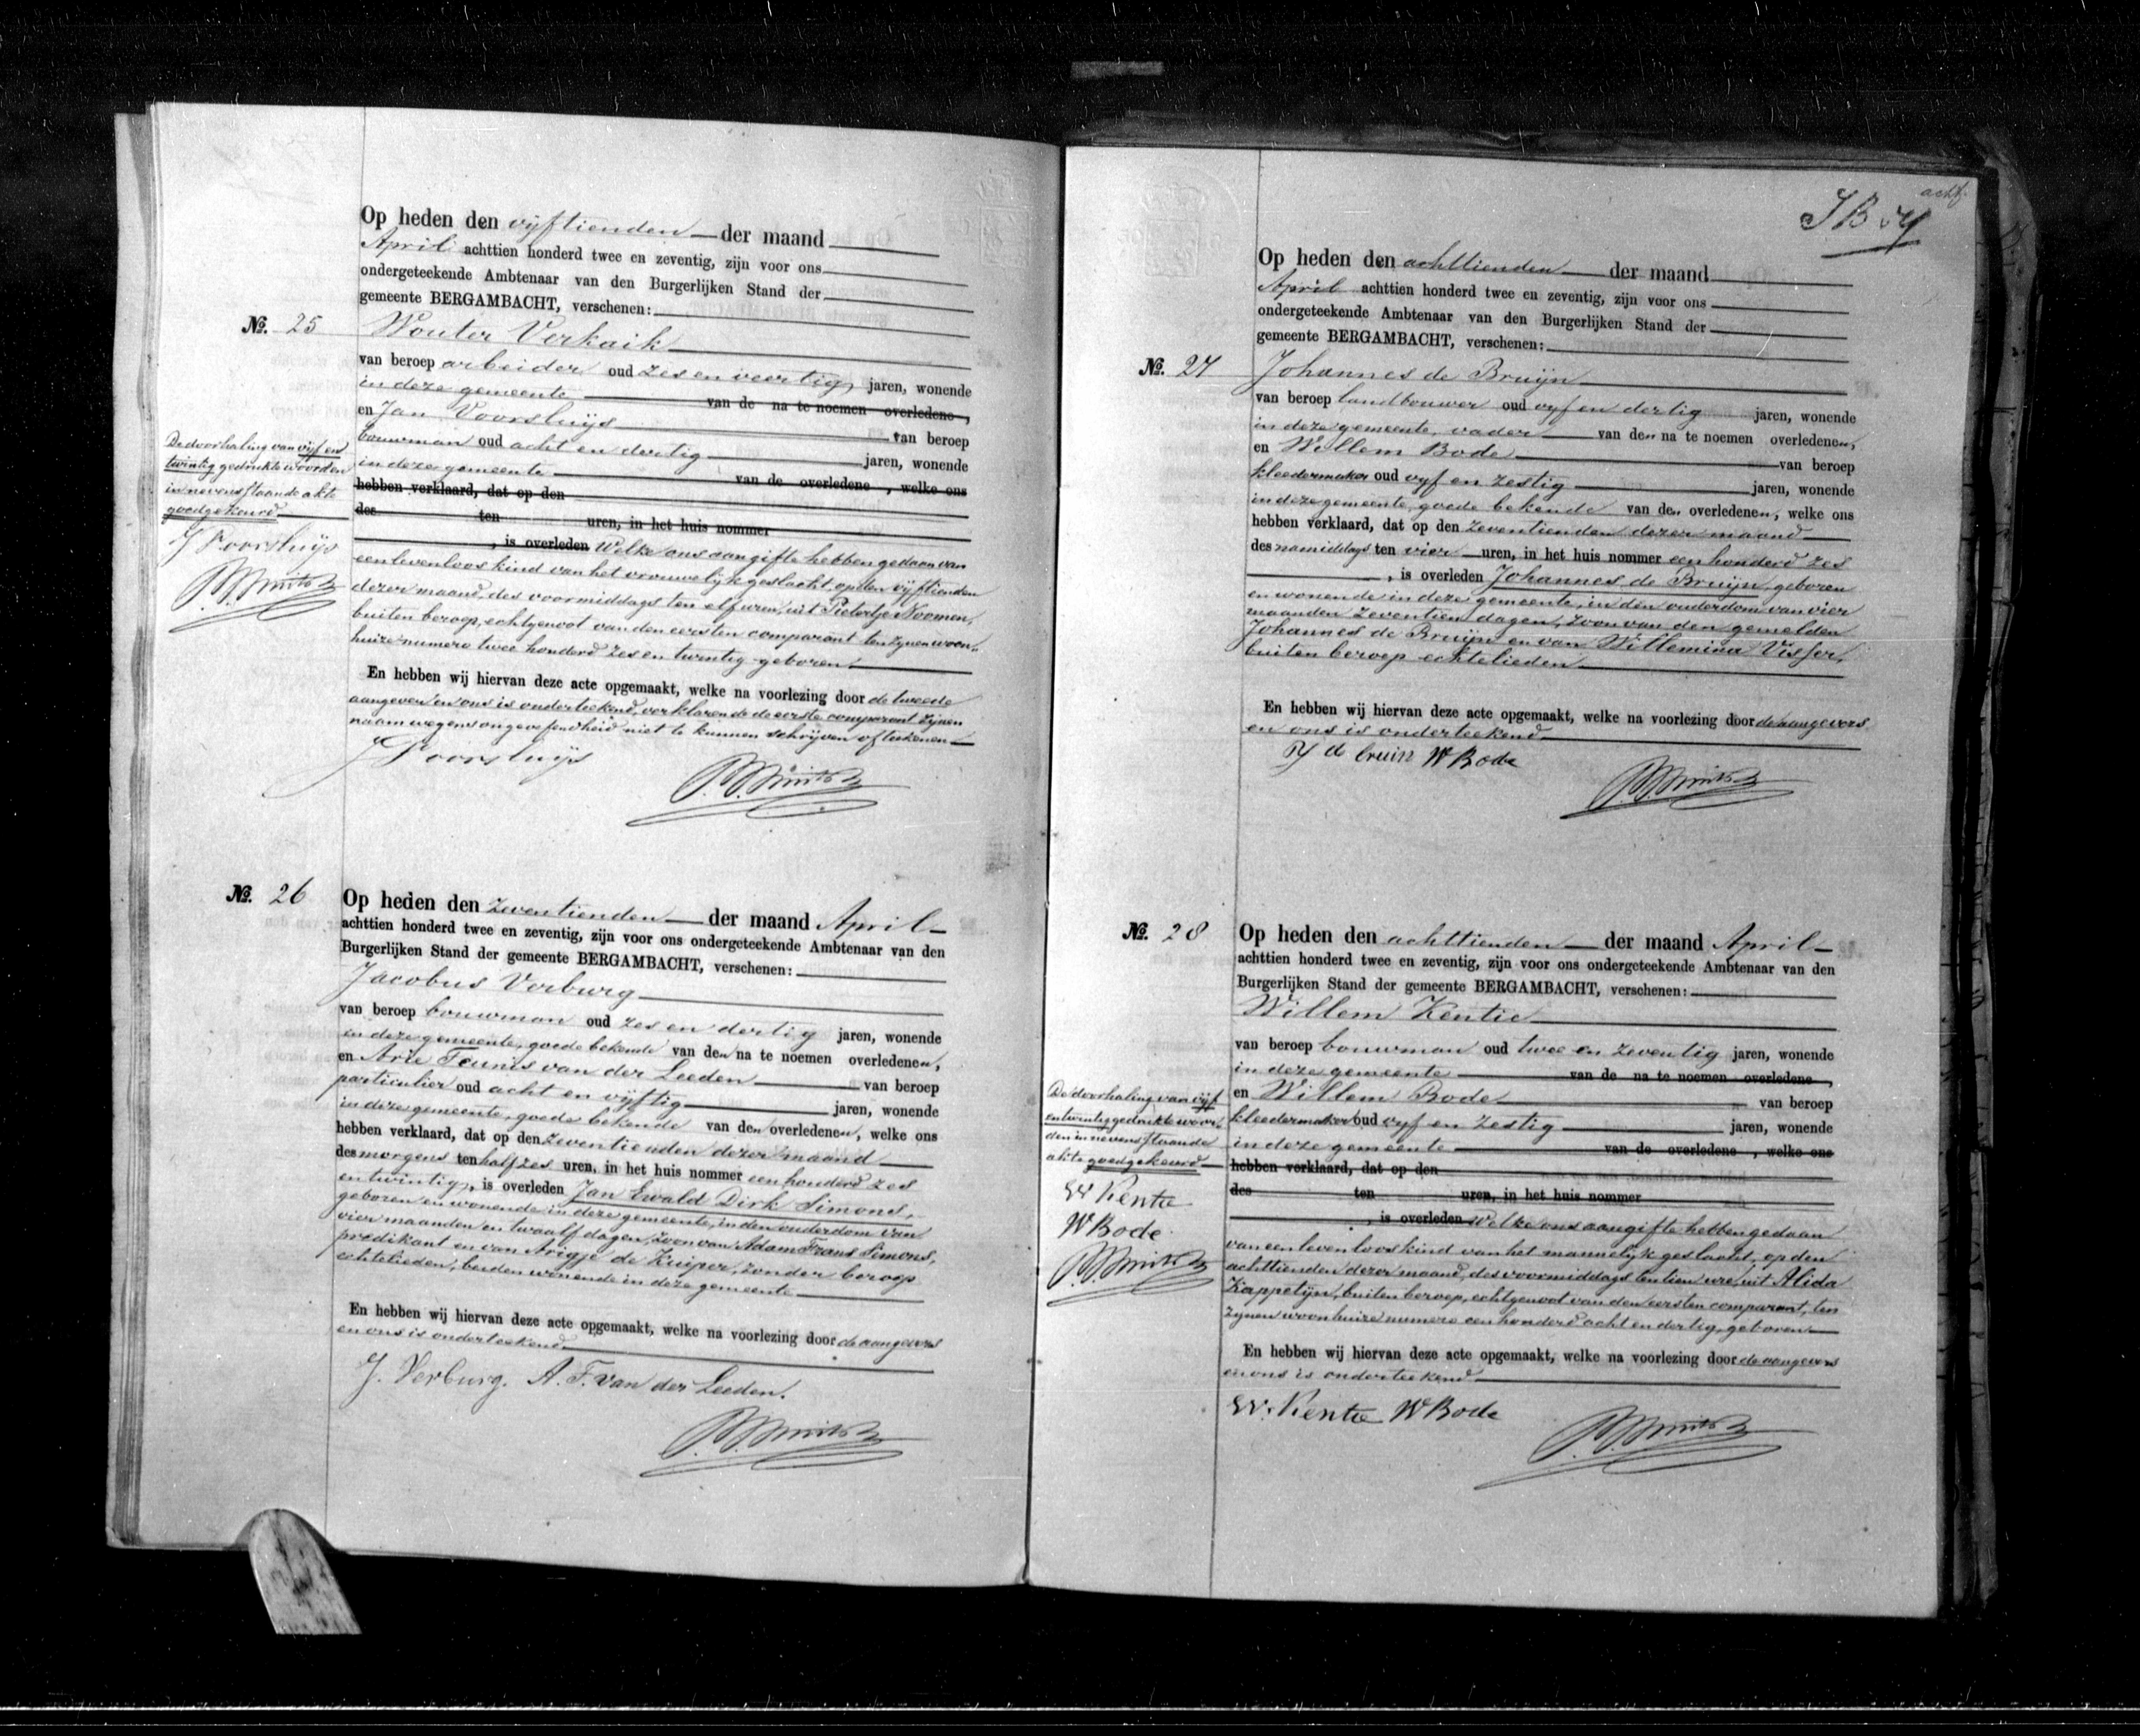 Op heden den vijftienden der maand
April achttien honderd twee en zeventig, zijn voor ons
ondergeteekende Ambtenaar van den Burgerlijken Stand der
gemeente BERGAMBACHT, verschenen:
No. 25 Wouter Verkaik
van beroep arbeider oud zes en veertig jaren, wonende
in deze gemeente van de na te noemen overledene,
en Jan Voorsluijs van beroep
bouwman oud acht en dertig jaren, wonende
in deze gemeente van de overledene, welke ons
hebben verklaard, dat op den
des ten uren, in het huis nommer
, is overleden Welke ons aangifte hebben gedaan van
een levenloos kind van het vrouwelijk geslacht, op den vijftienden
dezer maand, des voormiddags ten elf uren, uit Pietertje Noomen,
buiten beroep, echtgenoot van den eersten comparant ten zijnen woon-
huize numero twee honderd zes en twintig geboren.
En hebben wij hiervan deze acte opgemaakt, welke na voorlezing door de tweede
aangever en ons is onderteekend, verklarende de eerste comparant zijnen
naam wegens ongeoefendheid niet te kunnen schrijven of teekenen
J Voorsluijs
De doorhaling van vijf en
twintig gedrukte woorden
in nevenstaande akte
goedgekeurd
J Voorsluijs
No. 26 Op heden den zeventienden der maand April
achttien honderd twee en zeventig, zijn voor ons ondergeteekende Ambtenaar van den
Burgerlijken Stand der gemeente BERGAMBACHT, verschenen:
Jacobus Verburg
van beroep bouwman oud zes en dertig jaren, wonende
in deze gemeente, goede bekende van den na te noemen overledenen,
en Arie Teunis van der Leeden van beroep
particulier oud acht en vijftig jaren, wonende
in deze gemeente, goede bekende van den overledenen, welke ons
hebben verklaard, dat op den zeventienden dezer maand
des morgens ten half zes uren, in het huis nommer een honderd zes
en twintig, is overleden Jan Ewald Dirk Simons,
geboren en wonende in deze gemeente, in den ouderdom van
vier maanden en twaalf dagen, zoon van Adam Frans Simons,
predikant en van Arigje de Kuiper, zonder beroep
echtelieden, beiden wonende in deze gemeente
En hebben wij hiervan deze acte opgemaakt, welke na voorlezing door de aangevers
en ons is onderteekend
J. Verburg. A. T. van der Leeden.
acht
Op heden den achttienden der maand
April achttien honderd twee en zeventig, zijn voor ons
ondergeteekende Ambtenaar van den Burgerlijken Stand der
gemeente BERGAMBACHT, verschenen:
No. 27 Johannes de Bruijn
van beroep landbouwer oud vijf en dertig jaren, wonende
in deze gemeente, vader van den na te noemen overledenen,
en Willem Bode van beroep
kleedermaker oud vijf en zestig jaren, wonende
in deze gemeente, goede bekende van den overledenen, welke ons
hebben verklaard, dat op den zeventienden dezer maand
des namiddags ten vier uren, in het huis nommer een honderd zes
, is overleden Johannes de Bruijn, geboren
en wonende in deze gemeente, in den ouderdom van vier
maanden zeventien dagen, zoon van den gemelden
Johannes de Bruijn en van Willemina Visser,
buiten beroep echtelieden
En hebben wij hiervan deze acte opgemaakt, welke na voorlezing door de aangevers
en ons is onderteekend
de bruin W Bode
No. 28 Op heden den achttienden der maand April
achttien honderd twee en zeventig, zijn voor ons ondergeteekende Ambtenaar van den
Burgerlijken Stand der gemeente BERGAMBACHT, verschenen:
Willem Kentie
van beroep bouwman oud twee en zeventig jaren, wonende
in deze gemeente van de na te noemen overledene,
en Willem Bode van beroep
kleedermaker oud vijf en zestig jaren, wonende
in deze gemeente van de overledene, welke ons
hebben verklaard, dat op den
des ten uren, in het huis nommer
, is overleden Welke ons aangifte hebben gedaan
van een levenloos kind van het mannelijk geslacht, op den
achttienden dezer maand, des voormiddags ten tien ure, uit Alida
Kappetijn, buiten beroep, echtgenoot van den eersten comparant, ten
zijnen woonhuize numero een honderd acht en dertig, geboren
En hebben wij hiervan deze acte opgemaakt, welke na voorlezing door de aangevers
en ons is onderteekend
W. Kentie W Bode
De doorhaling van vijf
en twintig gedrukte woor-
den in nevenstaande
akte goedgekeurd
W Kentie
W Bode